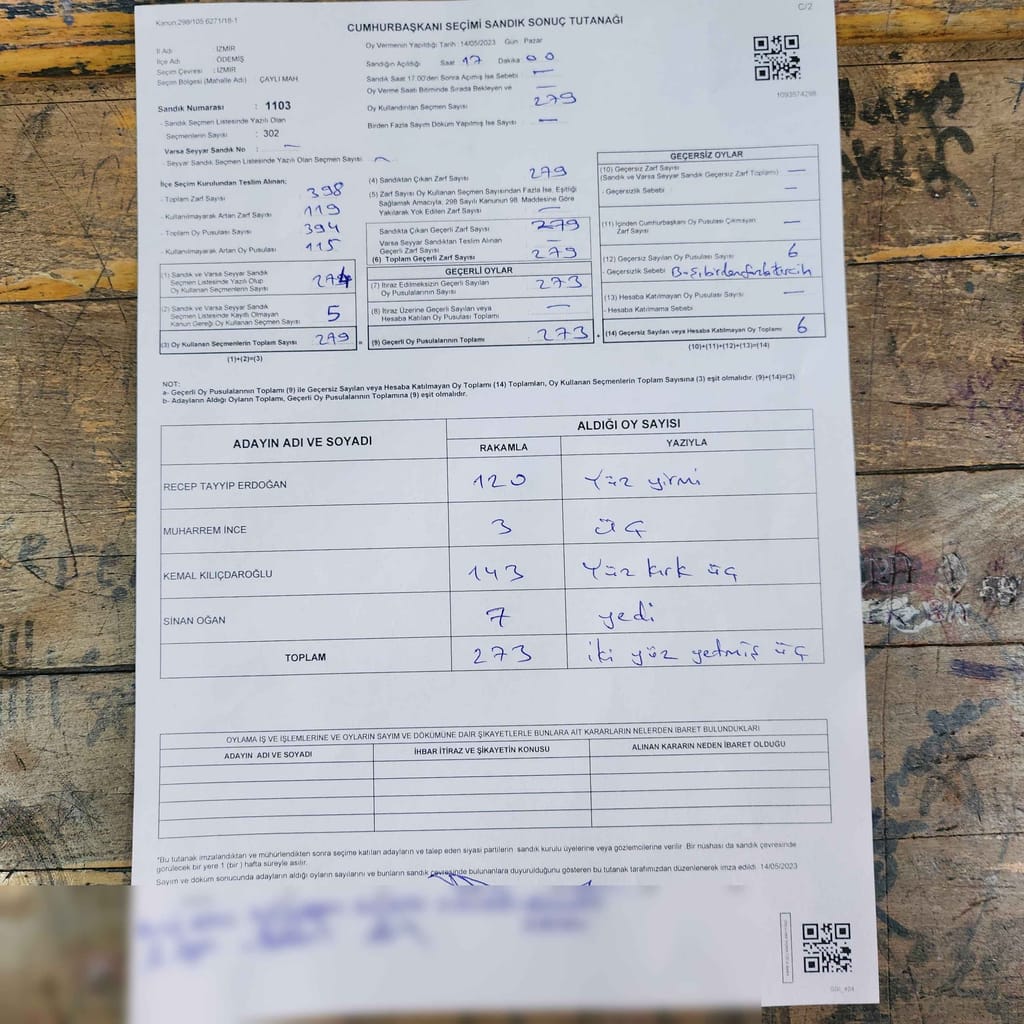 Kanun:298/105 6271/18-1
C/2
CUMHURBAŞKANI SEÇİMİ SANDIK SONUÇ TUTANAĞI
İl Adı : İZMİR
İlçe Adı ÖDEMİŞ
Seçim Çevresi : İZMİR
Seçim Bölgesi (Mahalle Adı) ÇAYLI MAH.
Sandık Numarası : 1103
- Sandık Seçmen Listesinde Yazılı Olan
Seçmenlerin Sayısı : 302
Varsa Seyyar Sandık No : —
- Seyyar Sandık Seçmen Listesinde Yazılı Olan Seçmen Sayısı: —
Oy Vermenin Yapıldığı Tarih :14/05/2023 Gün : Pazar
Sandığın Açıldığı Saat 17 Dakika 00
Sandık Saat 17.00'den Sonra Açımış İse Sebebi —
Oy Verme Saati Bitiminde Sırada Bekleyen ve —
Oy Kullandırılan Seçmen Sayısı 279
Birden Fazla Sayım Döküm Yapılmış İse Sayısı —
1093574298
İlçe Seçim Kurulundan Teslim Alınan;
- Toplam Zarf Sayısı 398
- Kullanılmayarak Artan Zarf Sayısı 119
- Toplam Oy Pusulası Sayısı 394
- Kullanılmayarak Artan Oy Pusulası 115
(1) Sandık ve Varsa Seyyar Sandık
Seçmen Listesinde Yazılı Olup
Oy Kullanan Seçmenlerin Sayısı 274
(2) Sandık ve Varsa Seyyar Sandık
Seçmen Listesinde Kayıtlı Olmayan
Kanun Gereği Oy Kullanan Seçmen Sayısı 5
(3) Oy Kullanan Seçmenlerin Toplam Sayısı : 279 =
(1)+(2)=(3)
(4) Sandıktan Çıkan Zarf Sayısı 279
(5) Zarf Sayısı Oy Kullanan Seçmen Sayısından Fazla İse, Eşitliği
Sağlamak Amacıyla, 298 Sayılı Kanunun 98. Maddesine Göre
Yakılarak Yok Edilen Zarf Sayısı —
Sandıkta Çıkan Geçerli Zarf Sayısı 279
Varsa Seyyar Sandıktan Teslim Alınan
Geçerli Zarf Sayısı —
(6) Toplam Geçerli Zarf Sayısı : 279
GEÇERLİ OYLAR
(7) İtiraz Edilmeksizin Geçerli Sayılan
Oy Pusulalarının Sayısı : 273
(8) İtiraz Üzerine Geçerli Sayılan veya
Hesaba Katılan Oy Pusulası Toplamı : —
(9) Geçerli Oy Pusulalarının Toplamı : 273 +
GEÇERSİZ OYLAR
(10) Geçersiz Zarf Sayısı
(Sandık ve Varsa Seyyar Sandık Geçersiz Zarf Toplamı) —
- Geçersizlik Sebebi : —
(11) İçinden Cumhurbaşkanı Oy Pusulası Çıkmayan
Zarf Sayısı —
(12) Geçersiz Sayılan Oy Pusulası Sayısı : 6
- Geçersizlik Sebebi
(13) Hesaba Katılmayan Oy Pusulası Sayısı : —
- Hesaba Katılmama Sebebi
(14) Geçersiz Sayılan veya Hesaba Katılmayan Oy Toplamı : 6
(10)+(11)+(12)+(13)=(14)
NOT:
a- Geçerli Oy Pusulalarının Toplamı (9) ile Geçersiz Sayılan veya Hesaba Katılmayan Oy Toplamı (14) Toplamları, Oy Kullanan Seçmenlerin Toplam Sayısına (3) eşit olmalıdır. (9)+(14)=(3)
b- Adayların Aldığı Oyların Toplamı, Geçerli Oy Pusulalarının Toplamına (9) eşit olmalıdır.
ADAYIN ADI VE SOYADI ALDIĞI OY SAYISI
RAKAMLA YAZIYLA
RECEP TAYYİP ERDOĞAN 120 Yüz yirmi
MUHARREM İNCE 3 üç
KEMAL KILIÇDAROĞLU 143 Yüz kırk üç
SİNAN OĞAN 7 yedi
TOPLAM 273 iki yüz yetmiş üç
OYLAMA İŞ VE İŞLEMLERİNE VE OYLARIN SAYIM VE DÖKÜMÜNE DAİR ŞİKAYETLERLE BUNLARA AİT KARARLARIN NELERDEN İBARET BULUNDUKLARI
ADAYIN ADI VE SOYADI İHBAR İTİRAZ VE ŞİKAYETİN KONUSU ALINAN KARARIN NEDEN İBARET OLDUĞU
*Bu tutanak imzalandıktan ve mühürlendikten sonra seçime katılan adayların ve talep eden siyasi partilerin sandık kurulu üyelerine veya gözlemcilerine verilir. Bir nüshası da sandık çevresinde
görülecek bir yere 1 (bir) hafta süreyle asılır.
Sayım ve döküm sonucunda adayların aldığı oyların sayılarını ve bunların sandık çevresinde bulunanlara duyurulduğunu gösteren bu tutanak tarafımızdan düzenlenerek imza edildi. 14/05/2023